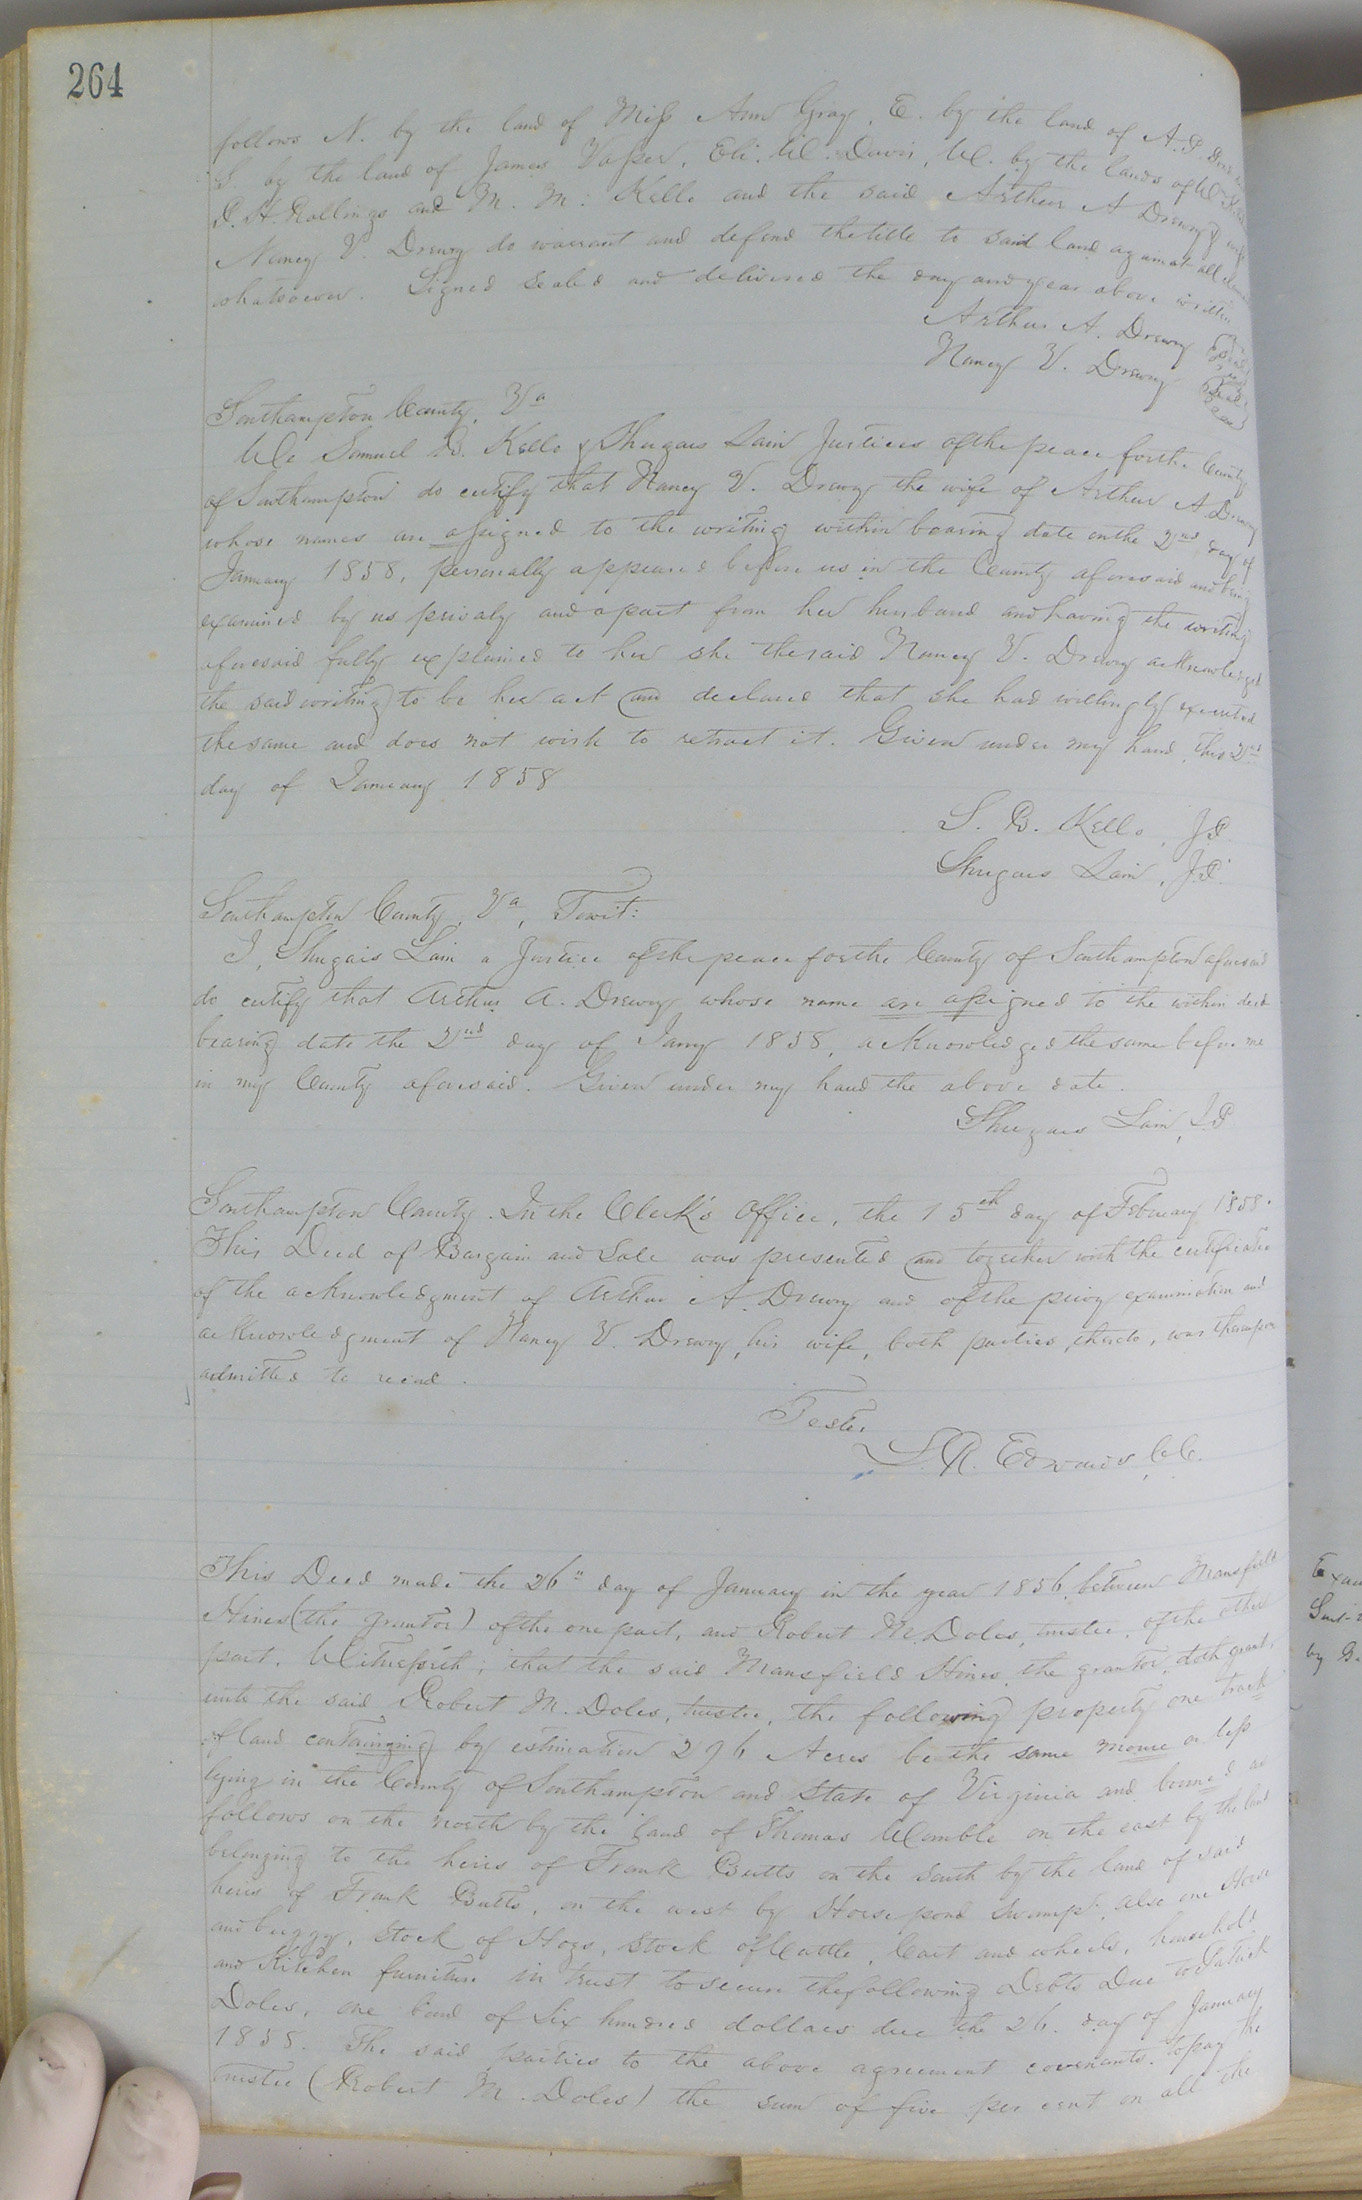 264
follows N. by the land of Miss Ann Gray, E. by the land of A. P.
S. by the land of James Vasser, Eli. W. Davis, W. by the lands of W
P. H. Rollings and M. M. Kello and the said Arthur A Drewry & wife
Nancy V. Drewry do warrant and defend the title to said land against all
whatsoever. Signed sealed and delivered the day and year above written
Arthur A. Drewry
Nancy V. Drewry
Southampton County, Va
We Samuel B. Kello & Shugars Lain Justices of the peace for the County
of Southampton do certify that Nancy V. Drewry the wife of Arthur A Drewry
whose names are assigned to the writing within bearing date on the 2nd day of
January 1858, personally appeared before us in the County aforesaid and being
examined by us privaly and apart from her husband and having the writing
aforesaid fully explained to her she the said Nancy V. Drewry acknowledged
the said writing to be her act and declared that she had willingly executed
the same and does not wish to retract it. Given under my hand this 2nd
day of January 1858
S. B. Kello, J.P.
Shugars Lain, J.P.
Southampton County, Va, Towit:
I, Shugars Lain a Justice of the peace for the County of Southampton aforesaid
do certify that Arthur A. Drewry whose name are assigned to the within deed
bearing date the 2nd day of Jany 1858, acknowledged the same before me
in my County aforesaid. Given under my hand the above date.
Shugars Lain, J.P
Southampton County. In the Clerk's Office, the 15th day of February 1858.
This Deed of Bargain and Sale was presented and together with the certificates
of the acknowledgment of Arthur A. Drewry and of the privy examination and
acknowledgment of Nancy V. Drewry, his wife, both parties, thereto, was thereupon
admitted to record.
Teste,
L. R. Edwards, C.C.
This Deed made the 26" day of January in the year 1856, between Mansfield
Hines (the grantor) of the one part, and Robert M. Doles, trustee, of the other
part. Witnesseth; that the said Mansfield Hines, the grantor, doth grant,
unto the said Robert M. Doles, trustee, the following property one track
of land containing by estimation 296 Acres be the same moure or less
lying in the County of Southampton and State of Virginia and bouned as
follows on the north by the land of Thomas Womble on the east by the land
belonging to the heirs of Frank Butts on the South by the land of said
heirs of Frank Butts, on the west by Horse pond Swamp, also one Horse
and buggy, Stock of Hogs, Stock of Cattle, Cart and wheels, household
and Kitchen furniture in trust to secure the following Debts Due to Patrick
Doles, one bond of Six hundred dollars due the 26. day of January
1858. The said parties to the above agreement covenants to pay the
trustee (Robert M. Doles) the sum of five per cent on all the